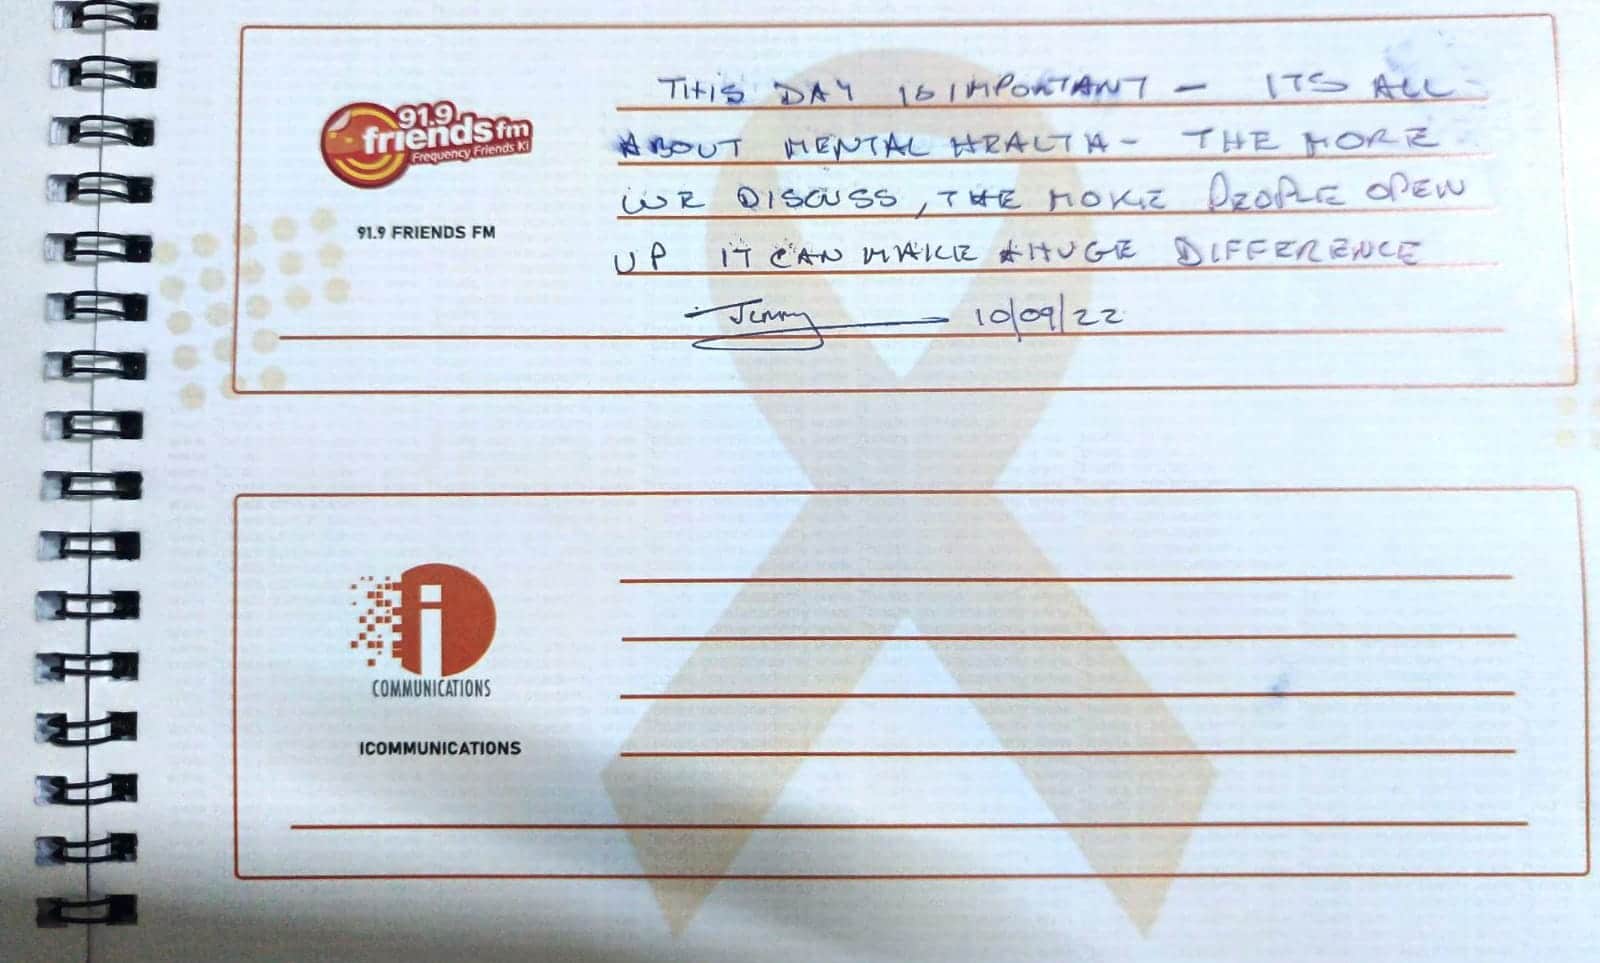 91.9
friends fm
Frequency Friends Ki
91.9 FRIENDS FM
THIS DAY IS IMPORTANT - ITS ALL
ABOUT MENTAL HEALTH - THE MORE
WE DISCUSS, THE MORE PEOPLE OPEN
UP IT CAN MAKE A HUGE DIFFERENCE
Jimmy 10/09/22
i
COMMUNICATIONS
ICOMMUNICATIONS